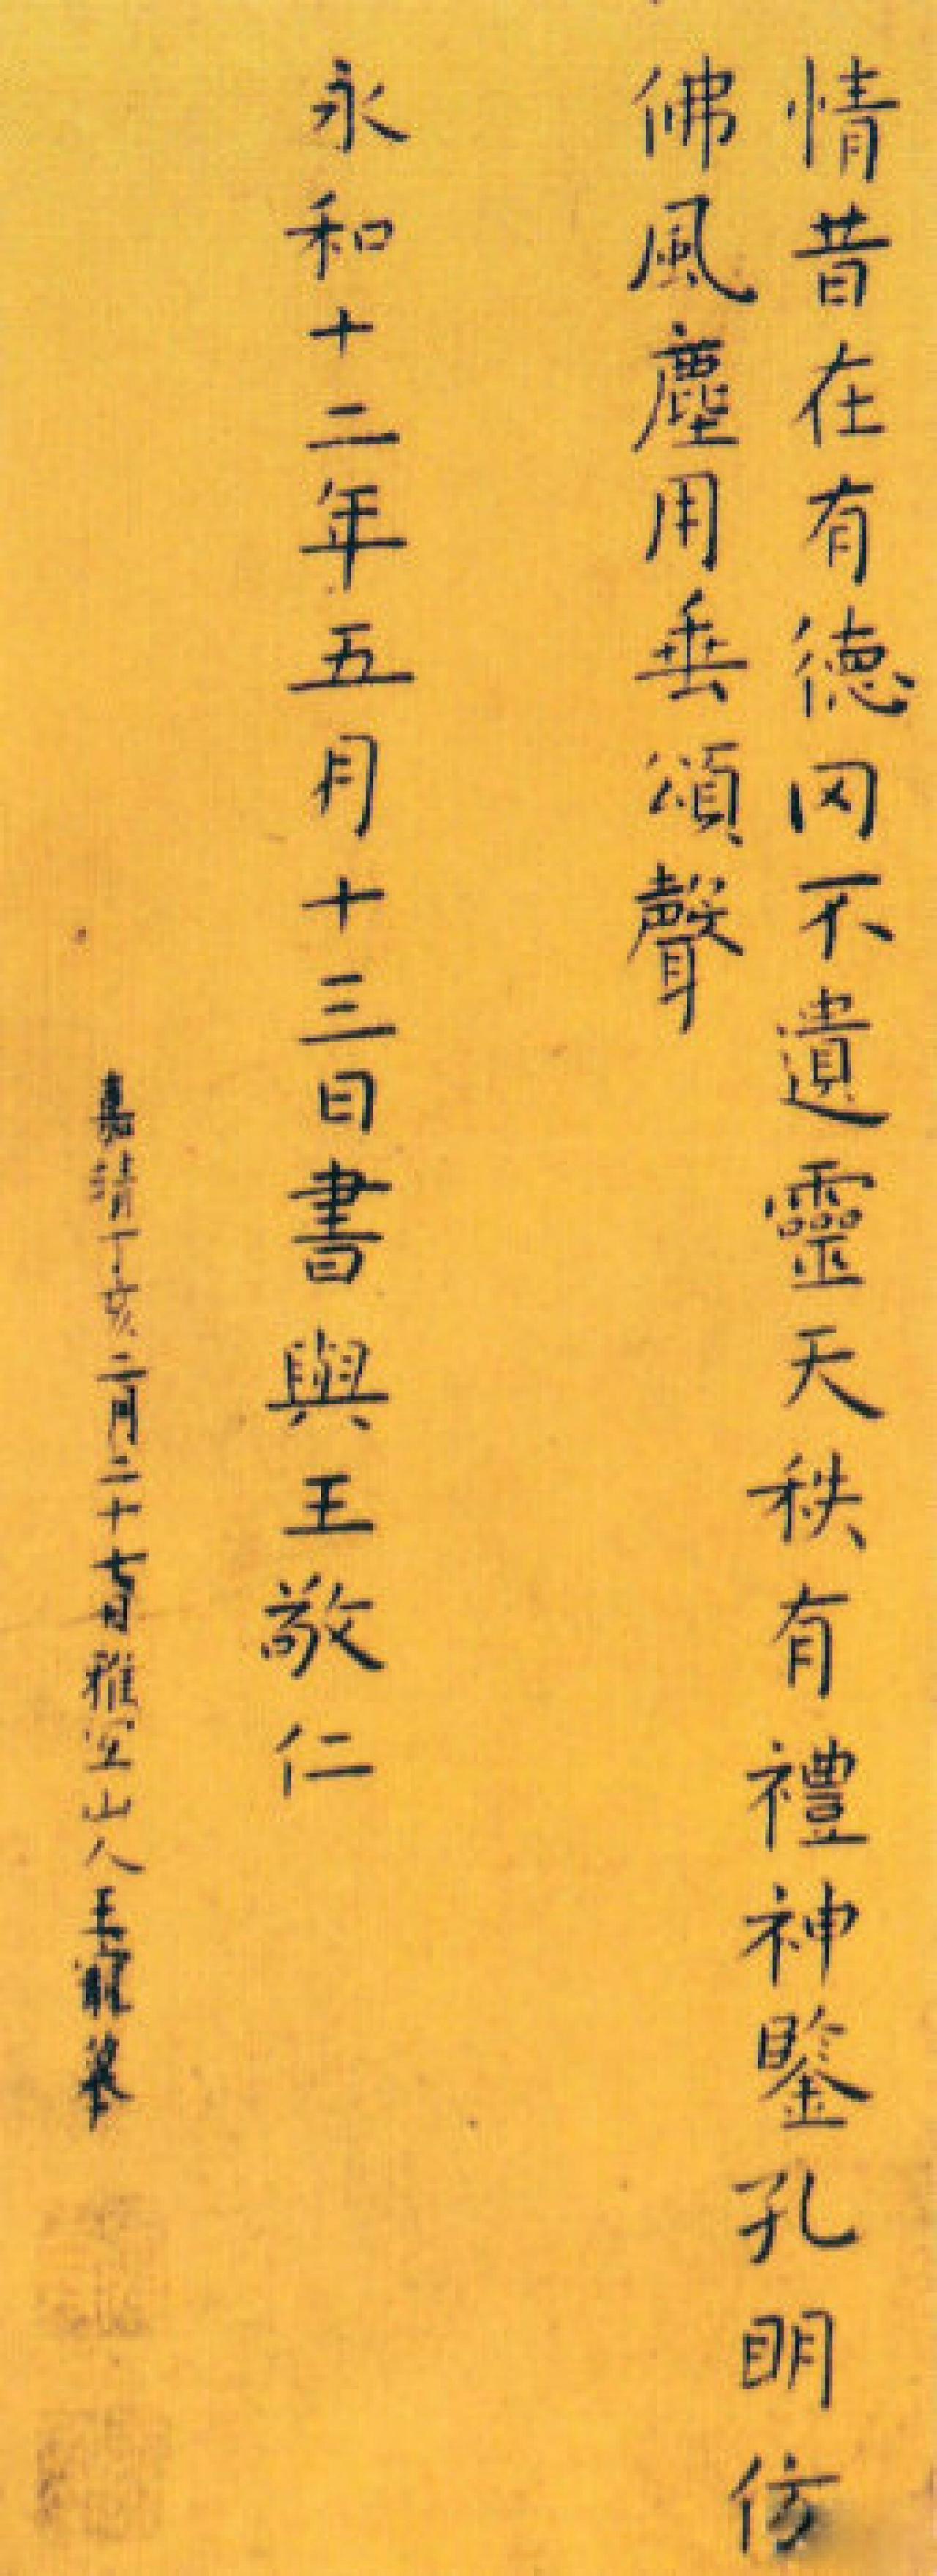 情昔在有德冈不遺靈天秩有禮神鑒孔眀仿
佛風塵用垂頌聲
永和十二年五月十三日書與王敬仁
嘉靖丁亥二月二十七日雅宜山人王寵摹